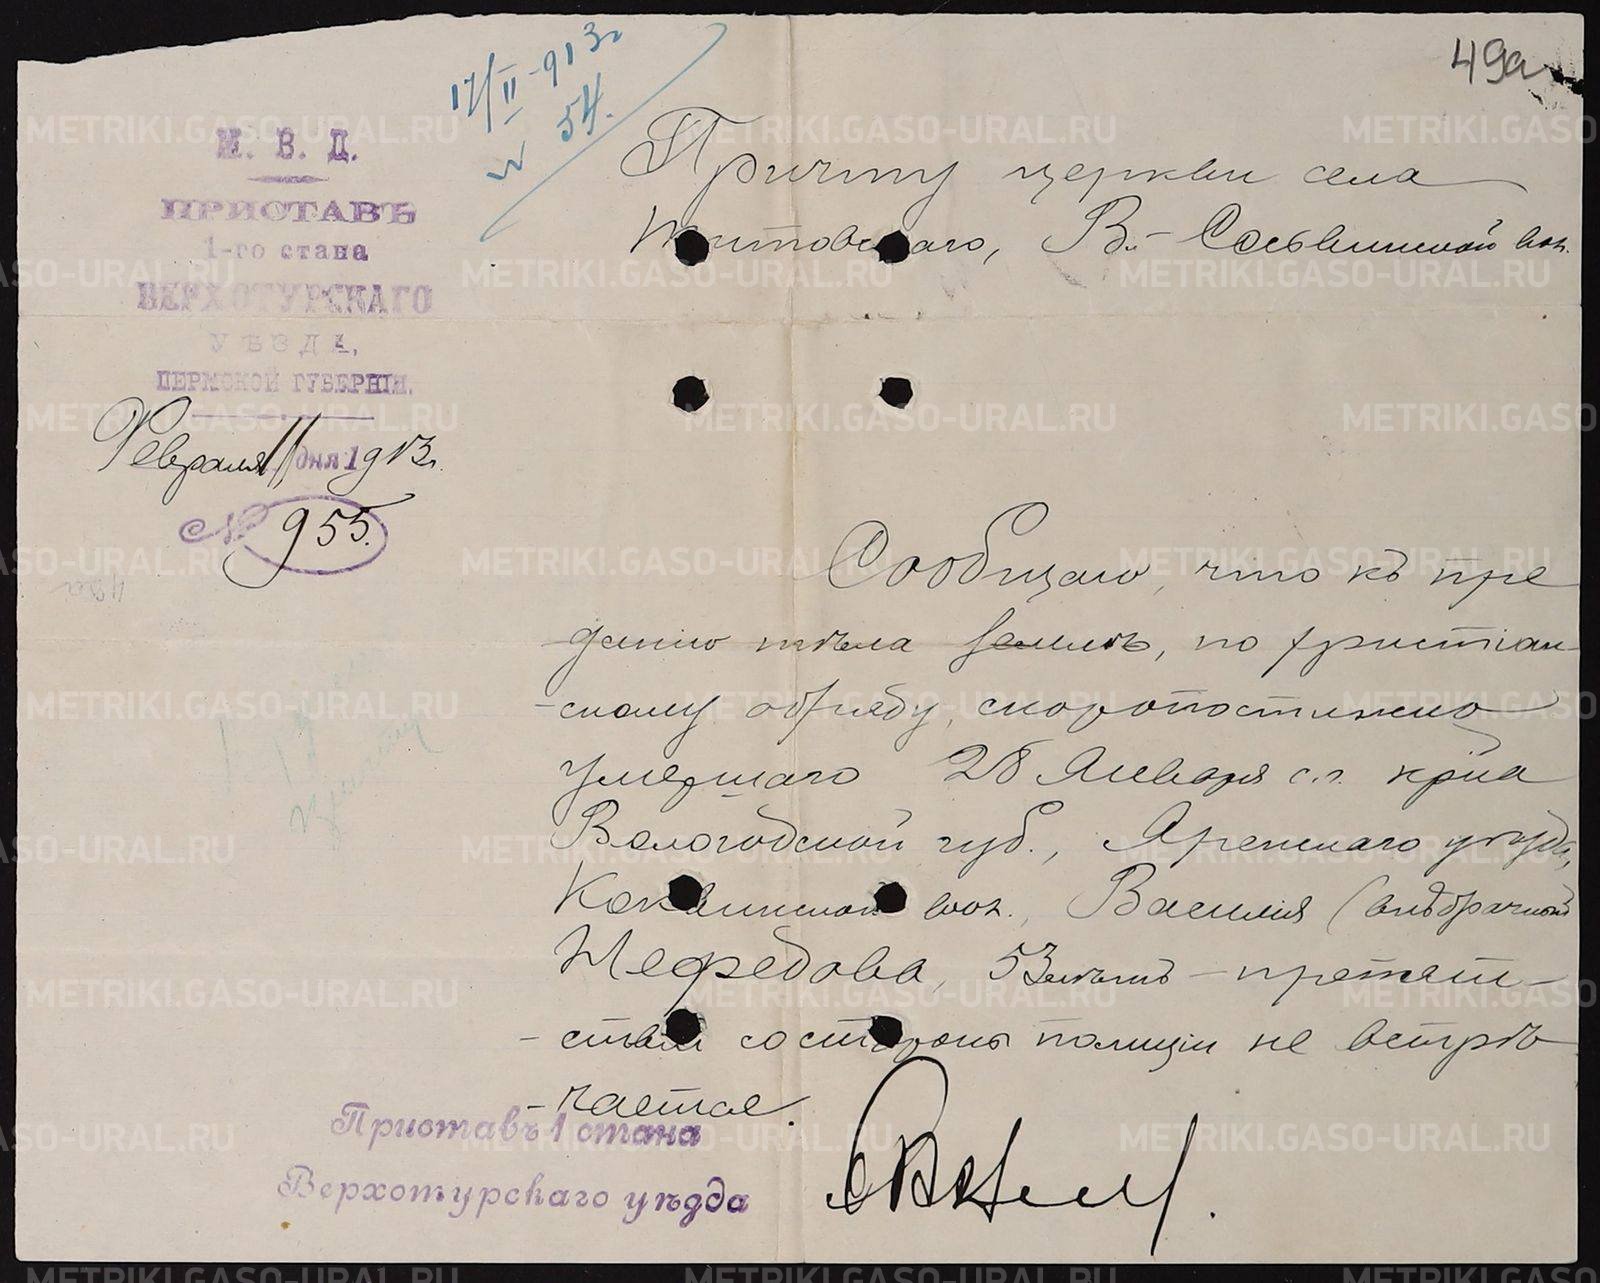 49а
17/II-913г
№ 54.
М. В. Д.
ПРИСТАВЪ
1-го стана
ВЕРХОТУРСКАГО
УѢЗДА,
ПЕРМСКОЙ ГУБЕРНІИ.
Февраля 11 дня 1913г.
№ 955.
Причту церкви села
Титовскаго, В.-Сосьвинской вол.
Сообщаю, что къ пре
данію тѣла землѣ, по христіан-
скому обряду, скоропостижно
умершаго 28 Января с.г. кр-на
Вологодской губ., Яренскаго уѣзда,
вол., Василія (внѣбрачный
Нефедова, 53 лѣтъ - препят-
-ствій со стороны полиціи не встрѣ
-чается.
Приставъ 1 стана
Верхотурскаго уѣзда
METRIKI.GASO-URAL.RU